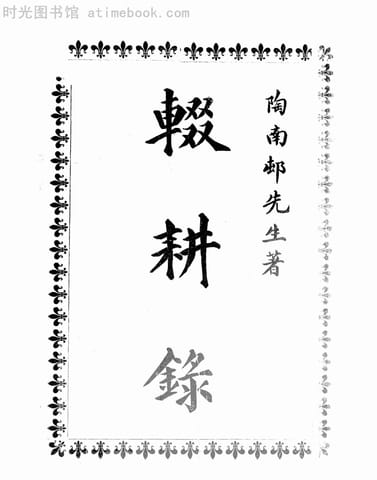 时光图书馆 atimebook.com
陶南邨先生著
輟耕錄